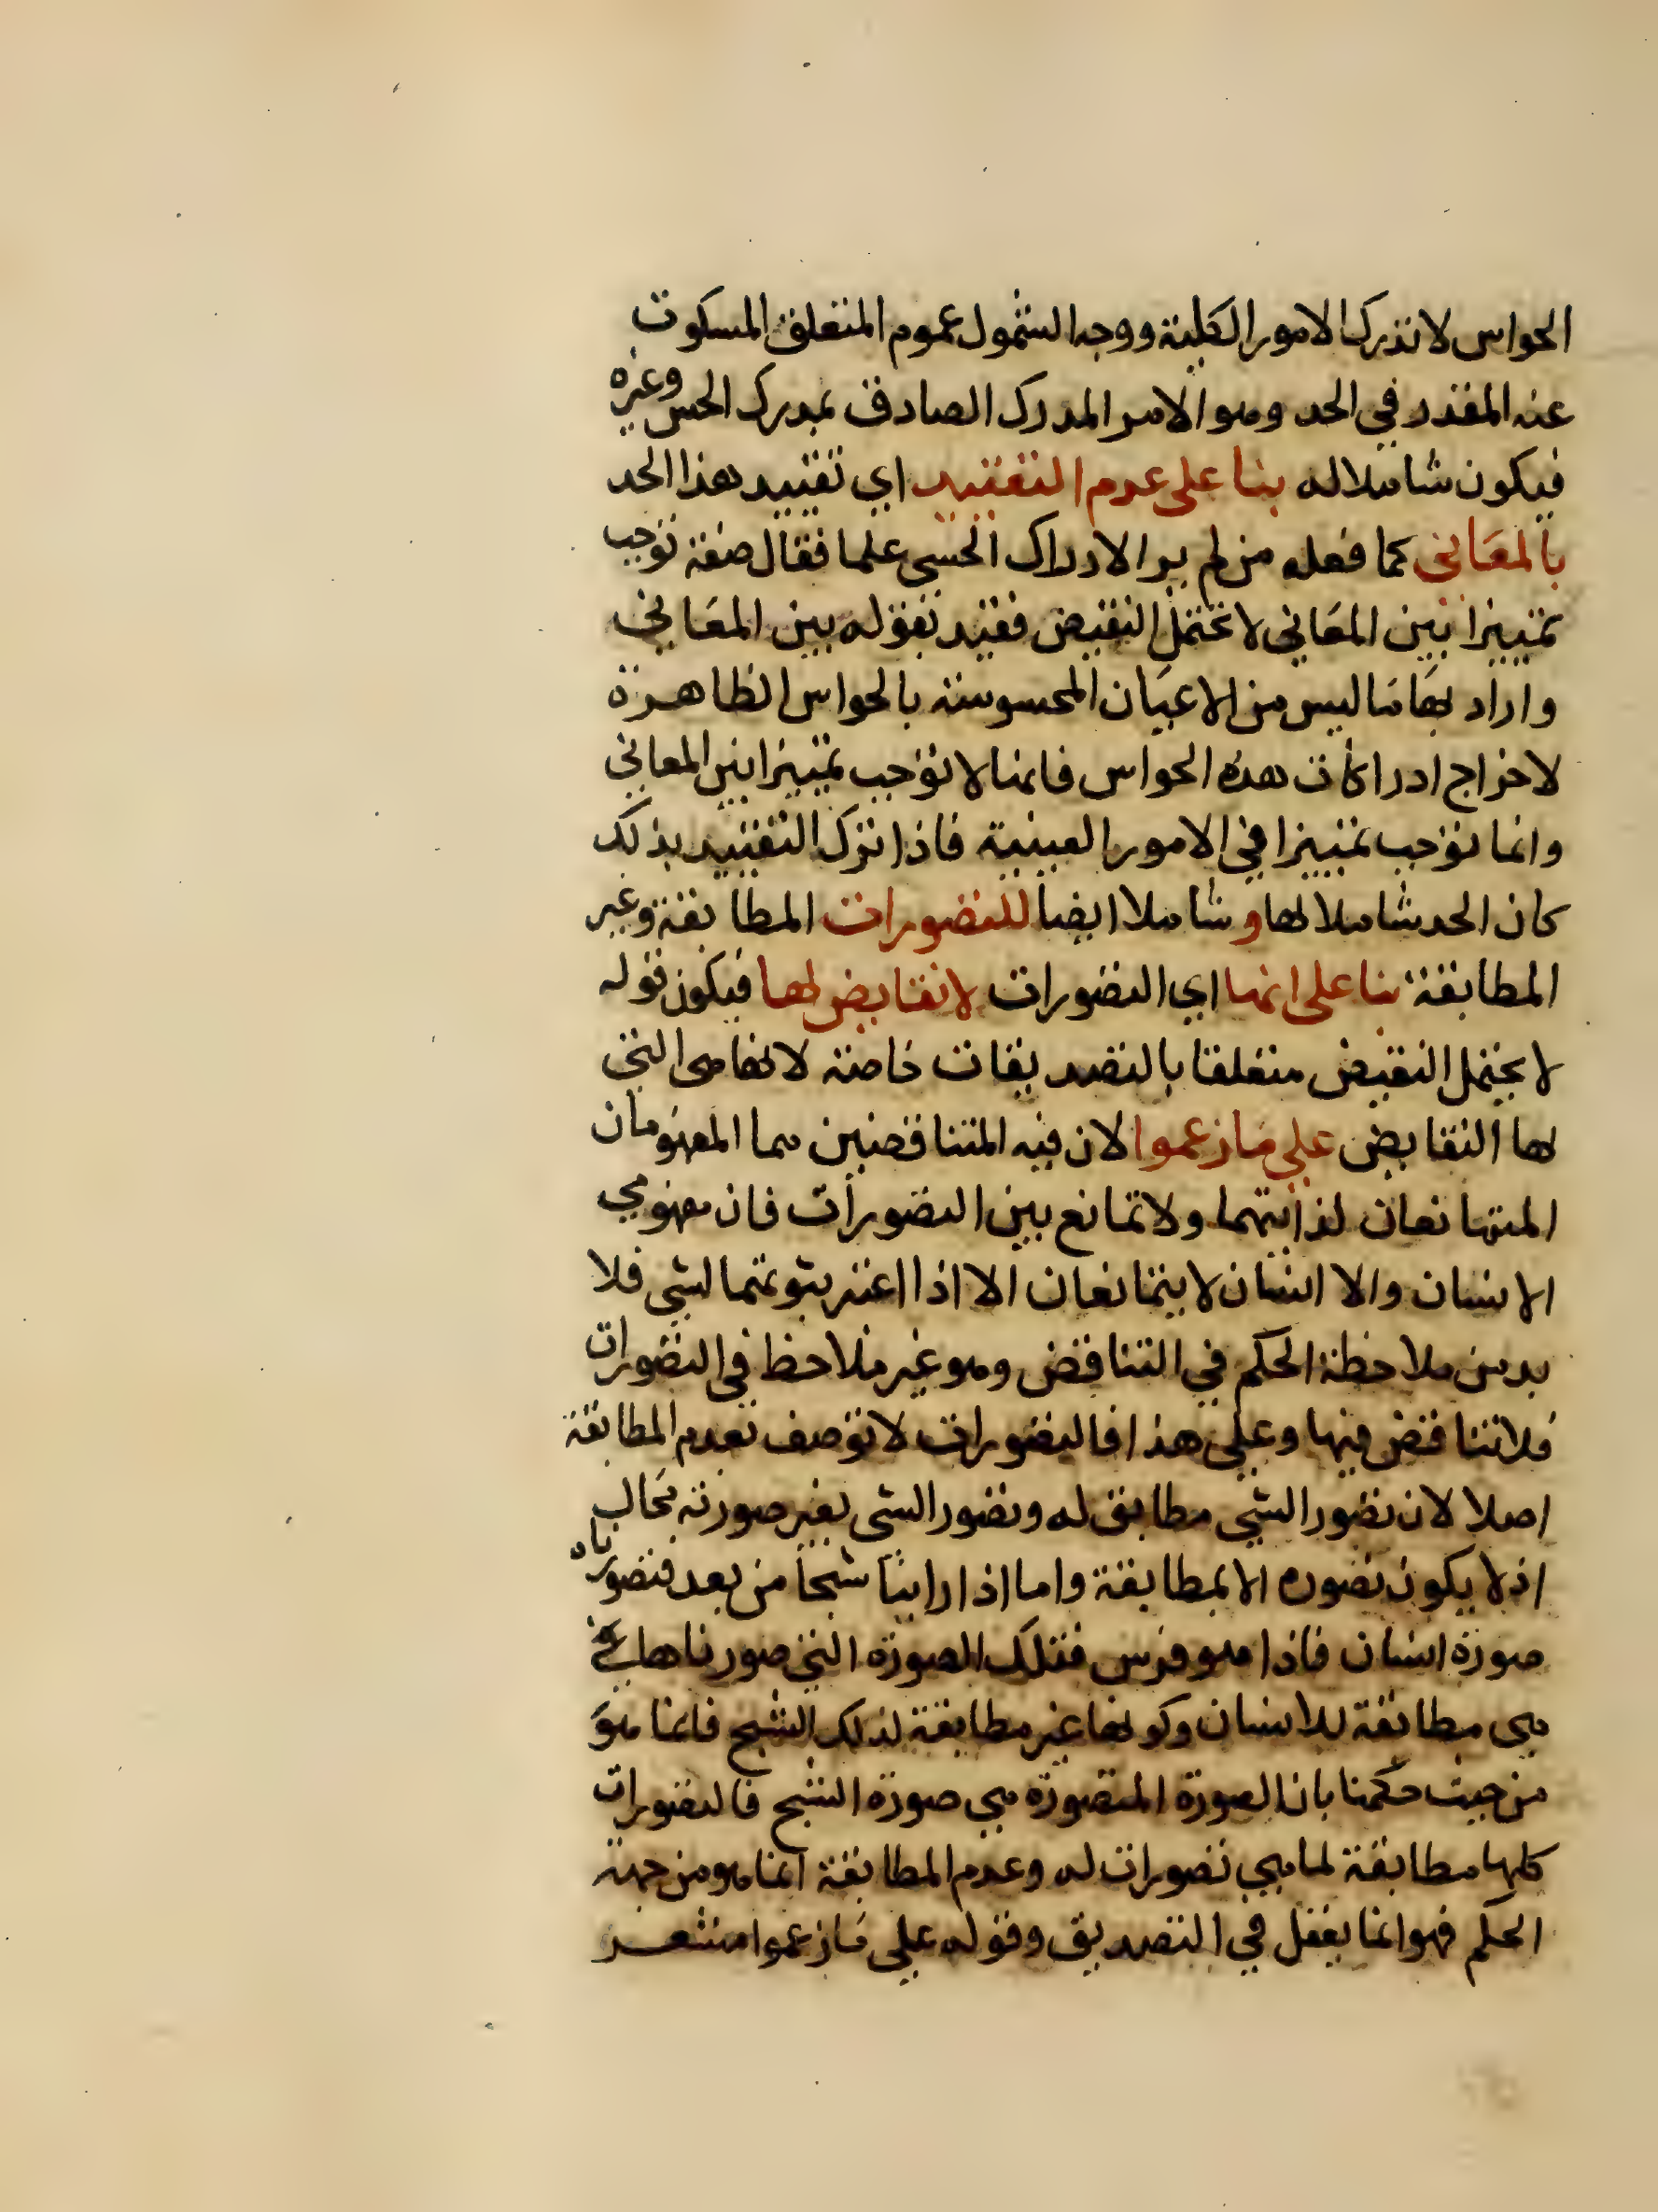 الحواس لا تدرك الامور الكلية ووجه الشمول عموم المتعلق المسكوت
عنه المقدر في الحد وهو الامر المدرك الصادق بمدرك الحس وغيره
فيكون شاملا له بنا على عدم التقييد اي تقييد هذا الحد
بالمعاني كما فعله من لم ير الادراك الحسي علما فقال صفة توجب
تمييزا بين المعاني لا تحتمل النقيض فقيد بقوله بين المعاني
واراد بها ما ليس من الاعيان المحسوسة بالحواس الظاهرة
لاخراج ادراكات هذه الحواس فانها لا توجب تمييزا بين المعاني
وانما توجب تمييزا في الامور العينية فاذا ترك التقييد بذلك
كان الحد شاملا لها و شاملا ايضا للتصورات المطابقة وغير
المطابقة بنا على انها اي التصورات لا نقايض لها فيكون قوله
لا يحتمل النقيض متعلقا بالتصديقات خاصة لانها هى التي
لها النقايض على ما زعموا لان فيه المتناقضين هما المفهومان
المتمانعان لذاتيهما ولا تمانع بين التصورات فان مفهومي
الانسان والا انسان لا يتمانعان الا اذا اعتبر ثبوتهما لشي فلا
بد من ملاحظة الحكم في التناقض وهو غير ملاحظ في التصورات
فلا تناقض فيها وعلى هذا فالتصورات لا توصف بعدم المطابقة
اصلا لان تصور الشي مطابق له وتصور الشى بغير صورته محال
اذ لا يكون تصوره الا بمطابقة واما اذا راينا شبحا من بعد فتصورناه
صورة انسان فاذا هو فرس فتلك الصورة التي صورناها
هي مطابقة للانسان وكونها غير مطابقة لذلك الشبح فانما هو
من حيث حكمنا بان الصورة المتصورة هي صورة الشبح فالتصورات
كلها مطابقة لما هي تصورات له وعدم المطابقة انما هو من جهة
الحكم فهو انما يعقل في التصديق وقوله على ما زعموا مشعر